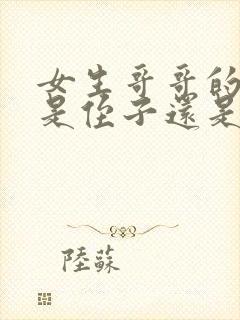 女生哥哥的
是侄子還是
陸蘇